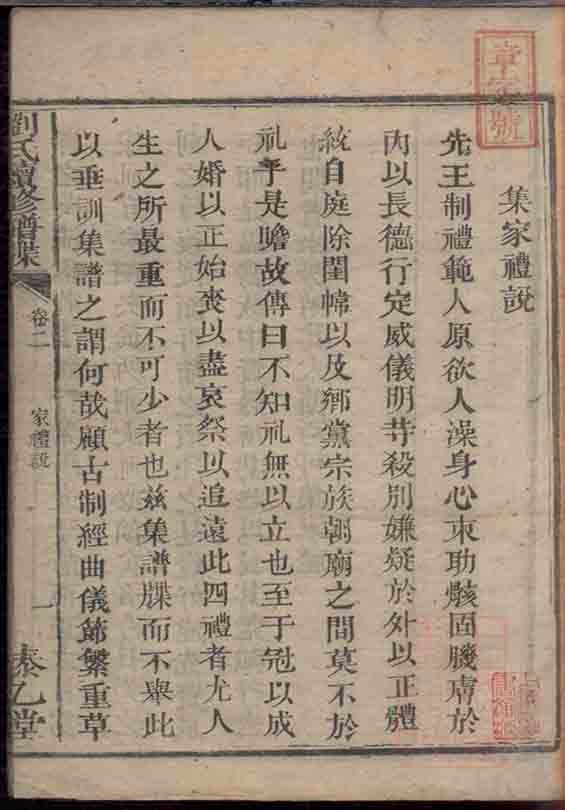 集家禮説
先王制禮範人原欲人澡身心束肋骸固膓膚於
内以長德行定威儀明䓁殺别嫌疑於外以正體
統自庭除閨幃以及鄉黨宗族朝廟之間莫不於
礼乎是瞻故傳曰不知礼無以立也至于冠以成
人婚以正始喪以盡哀祭以追遠此四禮者尤人
生之所最重而不可少者也兹集譜牒而不舉此
以垂訓集譜之謂何哉顧古制經曲儀節繁重草
劉氏續修譜牒
卷二
家禮説
一
泰乙堂